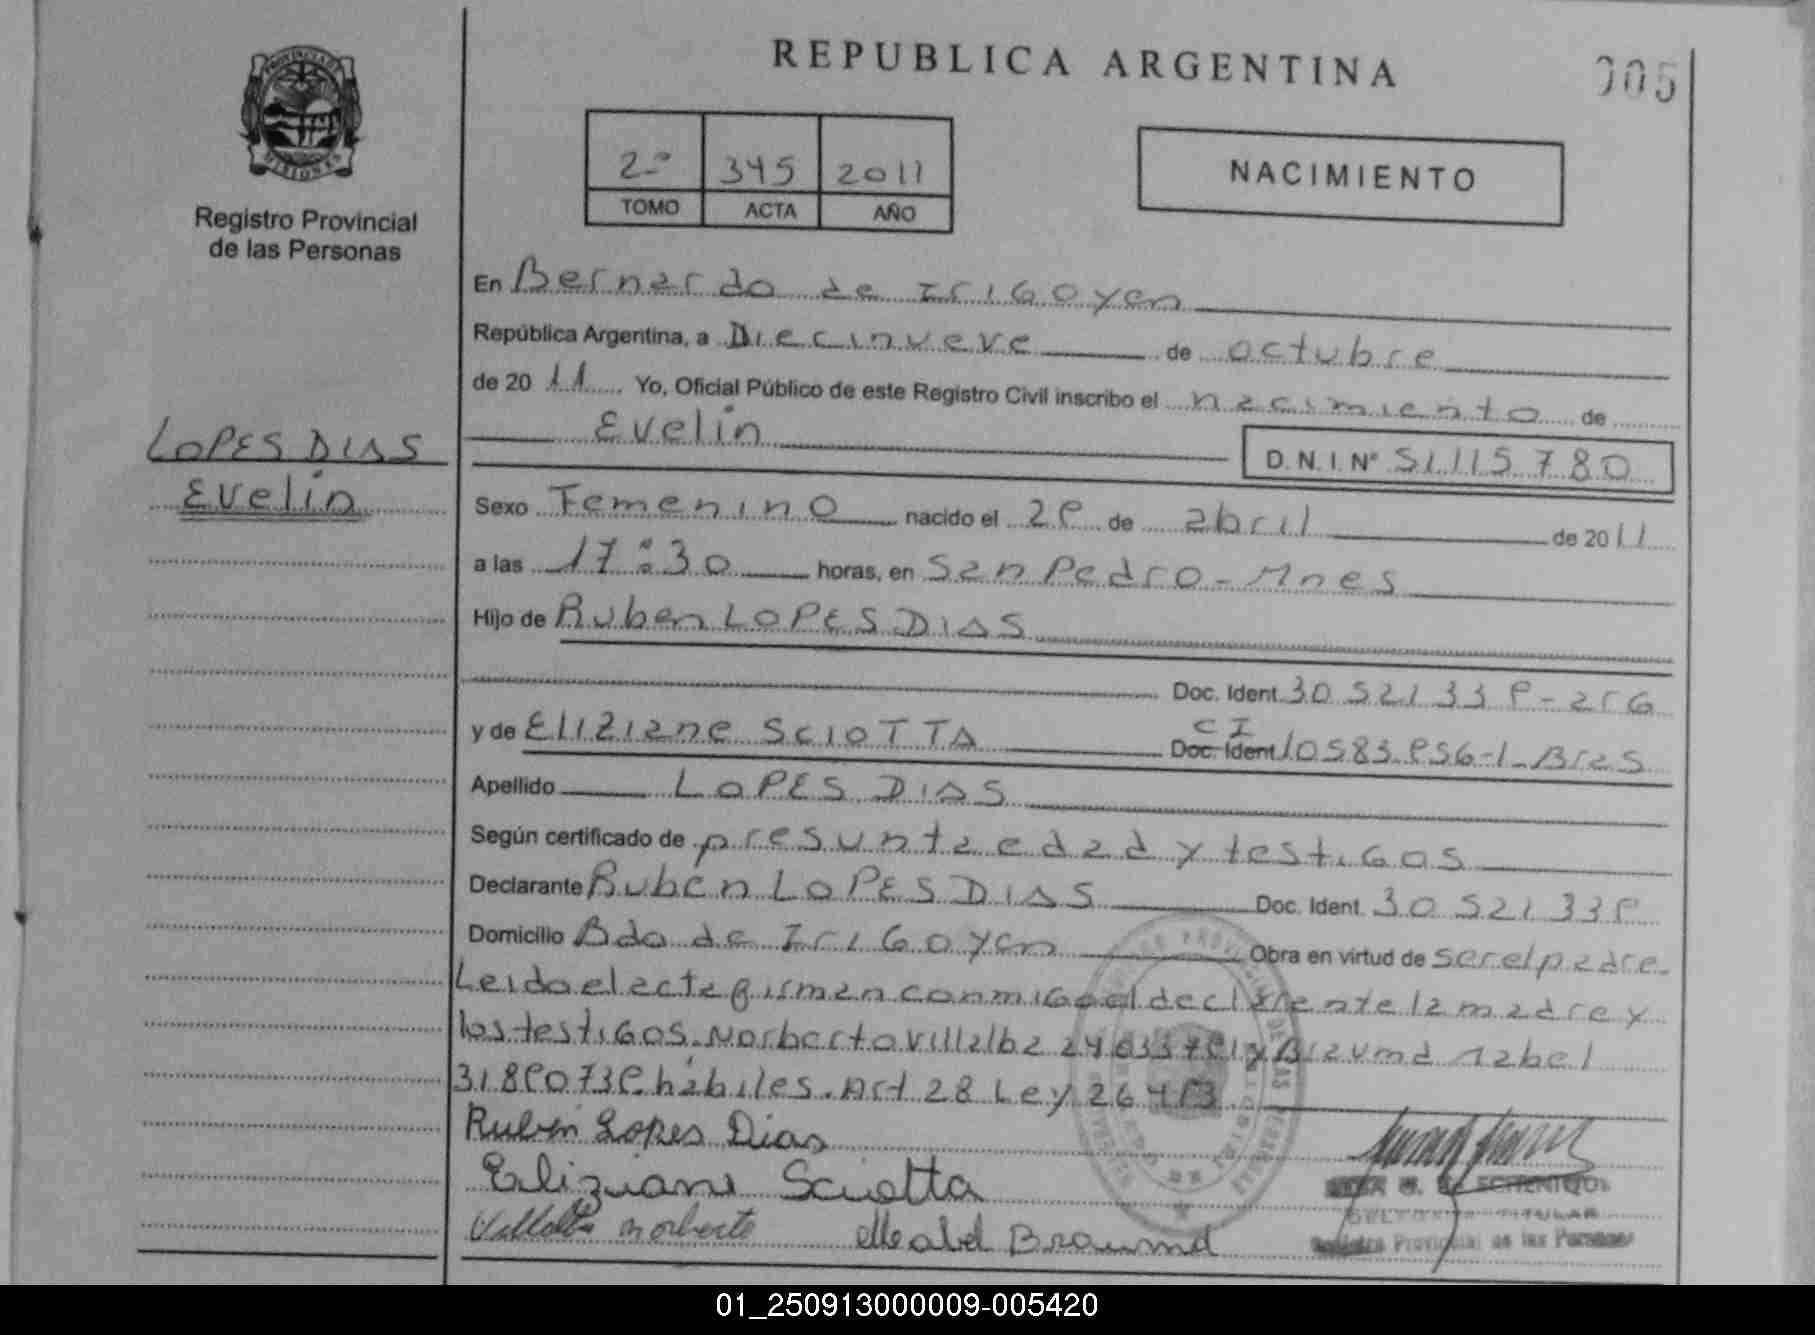 REPUBLICA ARGENTINA
005
PROVINCIA DE MISIONES
Registro Provincial
de las Personas
2º 345 2011
TOMO ACTA AÑO
NACIMIENTO
En Bernardo de Irigoyen
República Argentina, a Diecinueve de octubre
de 20 11 Yo, Oficial Público de este Registro Civil inscribo el nacimiento de
Evelin
D.N.I. Nº 51.115.780
LOPES DIAS
Evelin
Sexo Femenino nacido el 29 de abril de 2011
a las 17:30 horas, en San Pedro - Mnes
Hijo de Ruben LOPES DIAS
Doc. Ident. 30521339-arg
y de Eliziane SCIOTTA CI Doc. Ident. 10583956-1-Bras
Apellido LOPES DIAS
Según certificado de presunta edad y testigos
Declarante Ruben LOPES DIAS Doc. Ident. 30521339
Domicilio Bdo de Irigoyen Obra en virtud de ser el padre.
Leida el acta firman conmigo el declarante la madre y
los testigos. Norberto Villalba y Braumd Mabel
31890739 hábiles. Art 28 Ley 26413
Rubén Lopes Dias
Eliziane Sciotta
Villalba Norberto Meabel Braumd
TITULAR
Registro Provincial de las Personas
01_250913000009-005420